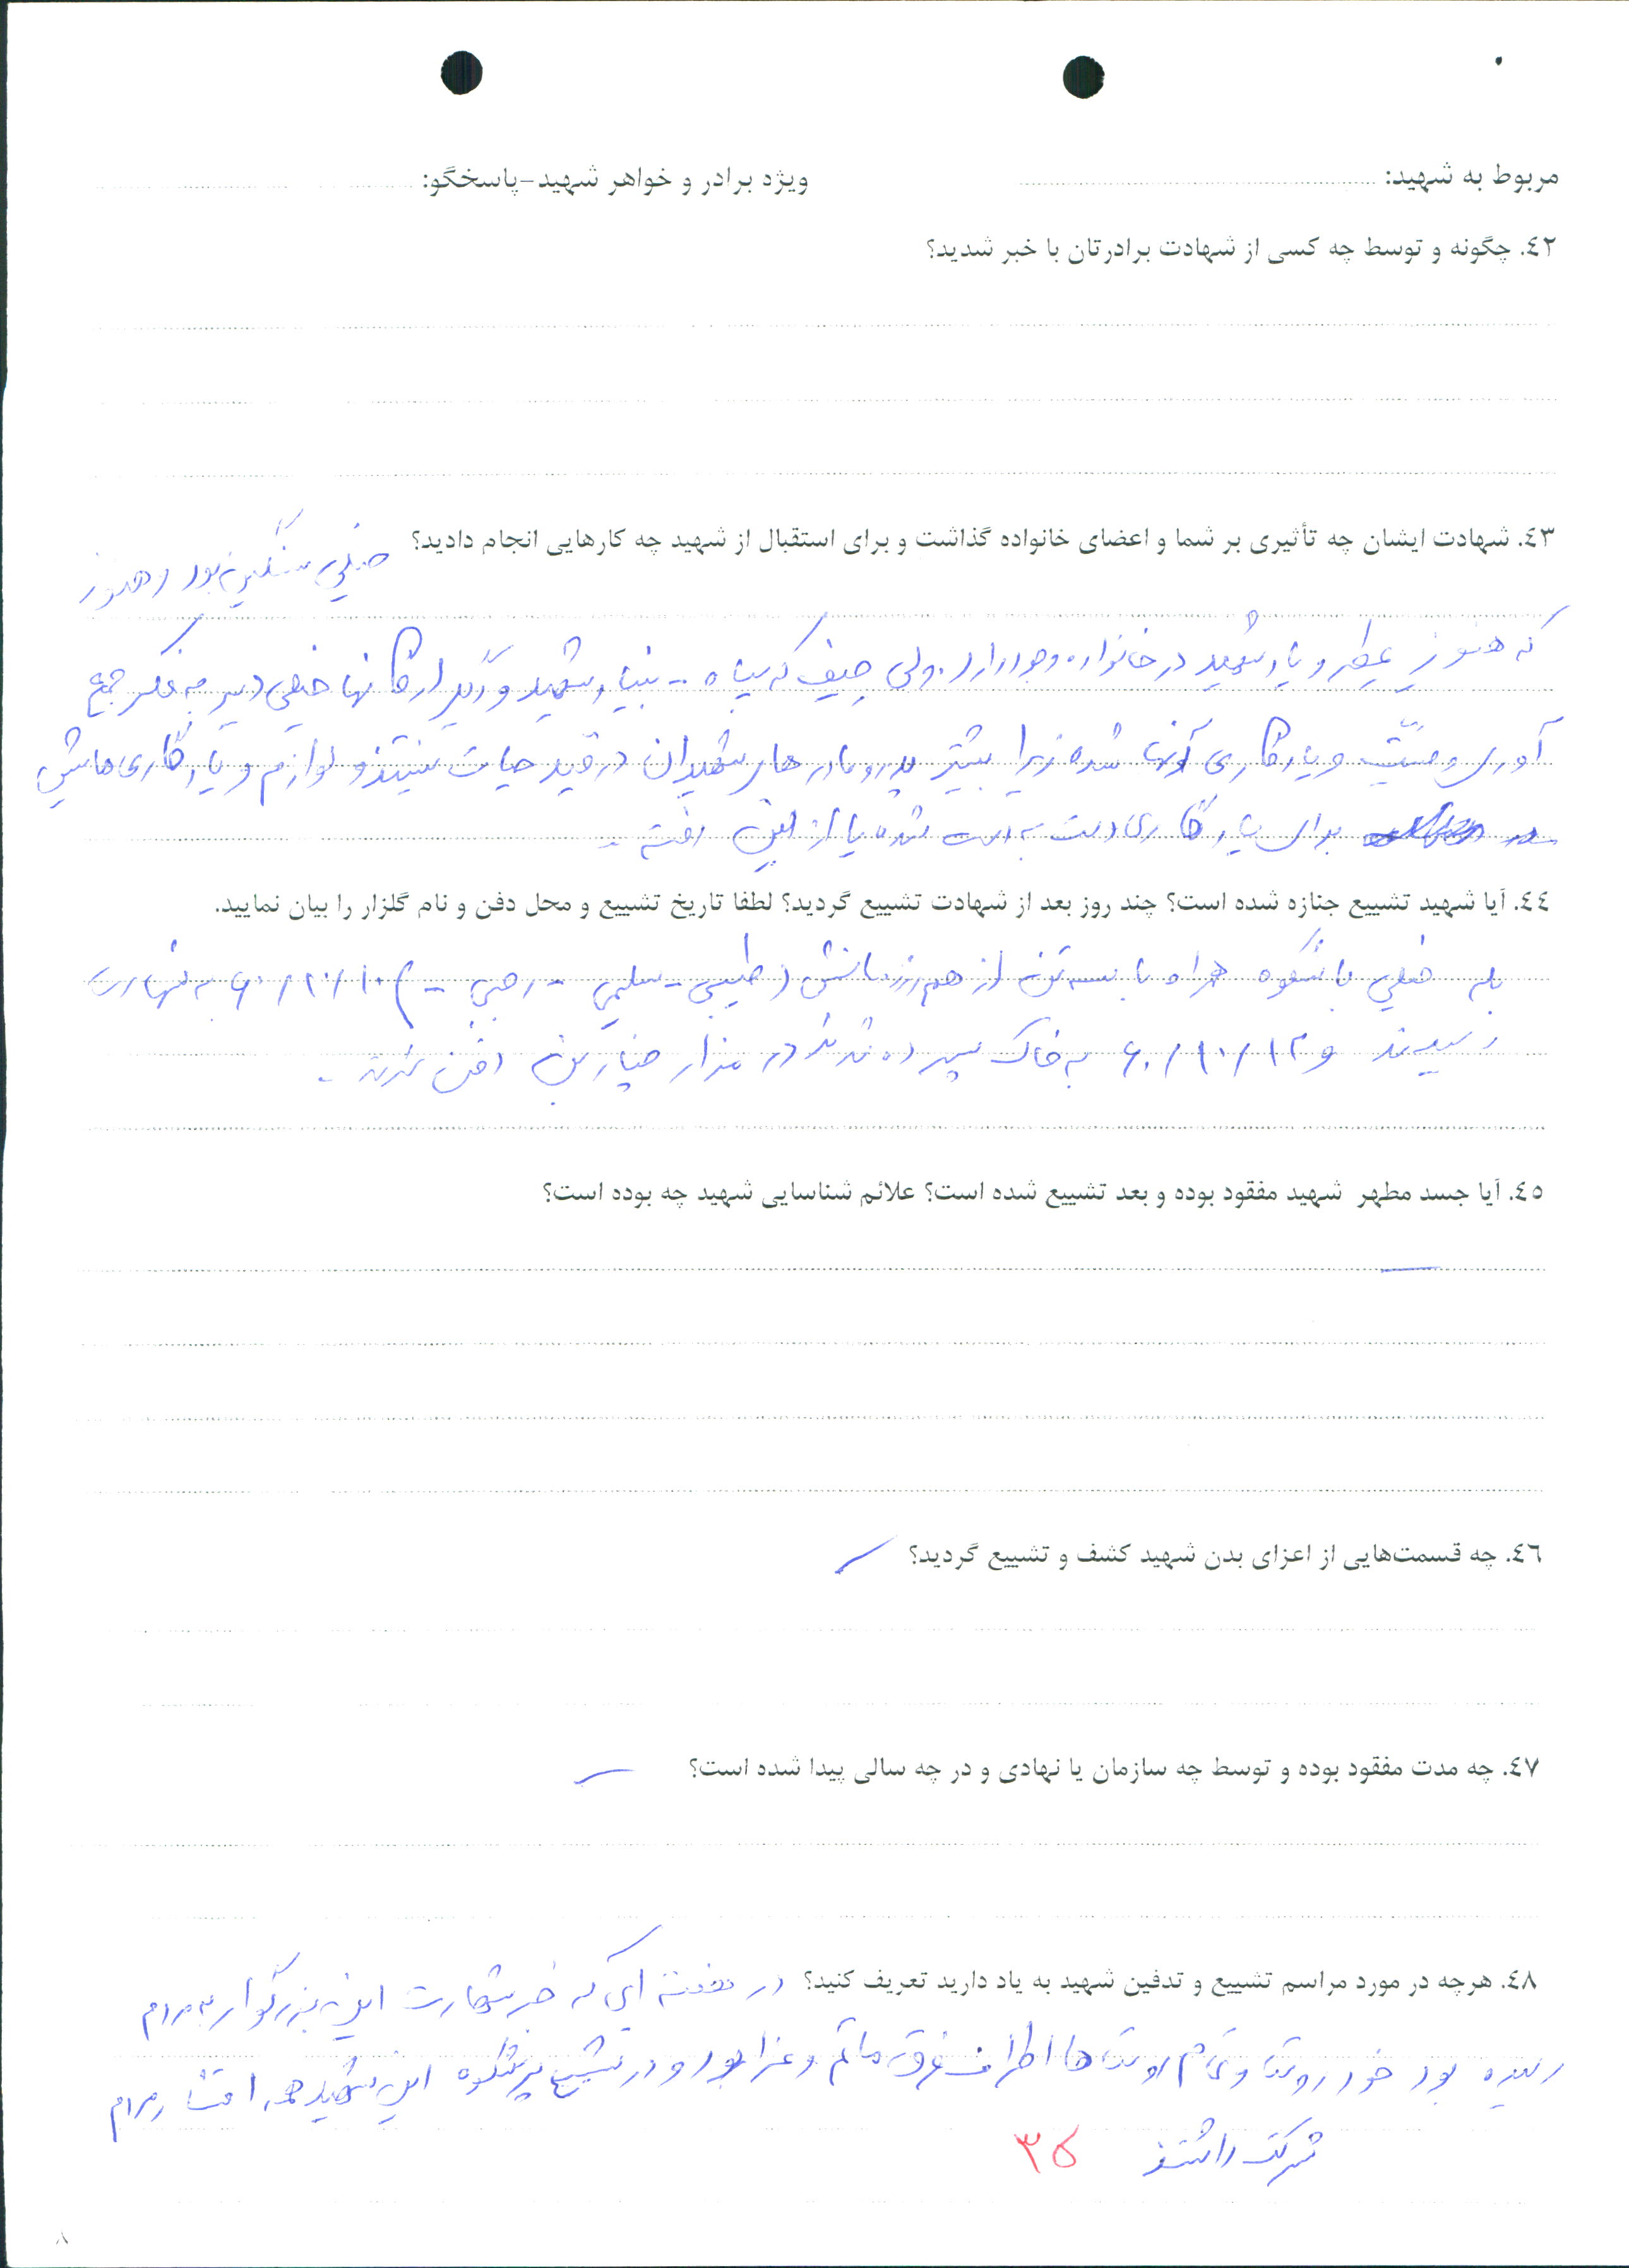 مربوط به شهید:
ویژه برادر و خواهر شهید-پاسخگو:
٤٢. چگونه و توسط چه کسی از شهادت برادرتان با خبر شدید؟
٤٣. شهادت ایشان چه تأثیری بر شما و اعضای خانواده گذاشت و برای استقبال از شهید چه کارهایی انجام دادید؟ خیلی سنگین بود و هنوز
که هنوز عطر و یاد شهید در خانواده وجود دارد. ولی حیف که سپاه - بنیاد شهید و دیگر ارگانها خیلی دیر به فکر جمع
آوری وصیت و یادگاری آنها شده زیرا بیشتر پدر و مادر های شهیدان در قید حیات نیستند و لوازم و یادگاری هایش
برای یادگاری دست به دست شده یا از بین رفته -
٤٤. آیا شهید تشییع جنازه شده است؟ چند روز بعد از شهادت تشییع گردید؟ لطفا تاریخ تشییع و محل دفن و نام گلزار را بیان نمایید.
بله خیلی باشکوه همراه با سه تن از هم رزمانش (طیبی - سلیمی - رجبی -) ۶۰/۱۰/۱۰ به شهادت
رسیدند و ۶۰/۱۰/۱۳ به خاک سپرده شدند در مزار دفن شدند -
٤٥. آیا جسد مطهر شهید مفقود بوده و بعد تشییع شده است؟ علائم شناسایی شهید چه بوده است؟
—
٤٦. چه قسمت‌هایی از اعزای بدن شهید کشف و تشییع گردید؟ —
٤٧. چه مدت مفقود بوده و توسط چه سازمان یا نهادی و در چه سالی پیدا شده است؟ —
٤٨. هرچه در مورد مراسم تشییع و تدفین شهید به یاد دارید تعریف کنید؟ در هفته ای که خبر شهادت این بزرگوار به مردم
رسیده بود خود روستا و تمام روستاها اطراف غرق ماتم و عزا بود و در تشییع پرشکوه این شهید همه اقشار مردم
شرکت داشتند ۳۵
۸